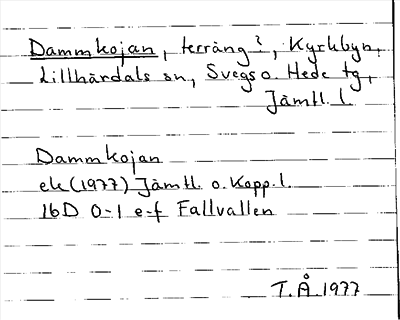 Dammkojan, terräng?, Kyrkbyn,
Lillhärdals sn, Svegs o. Hede tg,
Jämtl. l.
Dammkojan
ek (1977) Jämtl. o. Kopp. l.
16D 0-1 e-f Fallvallen
T.Å 1977